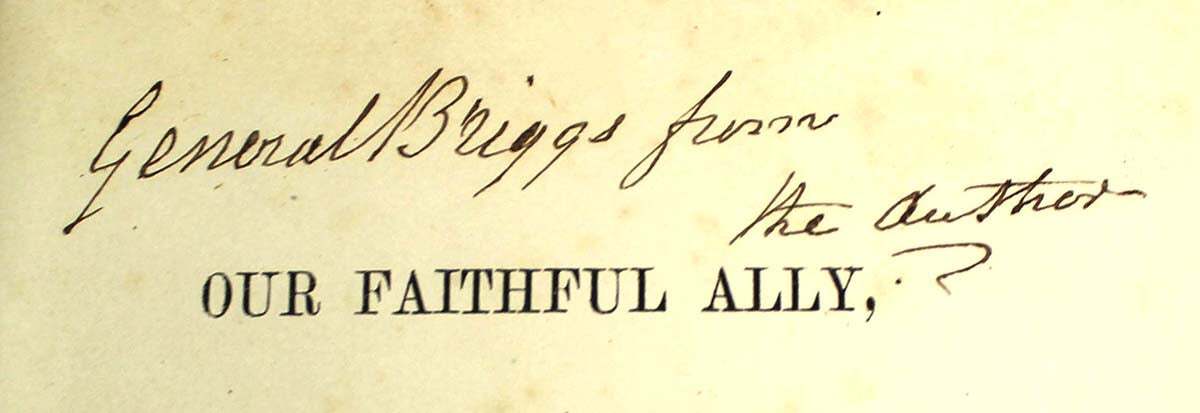 General Briggs from
the Author
OUR FAITHFUL ALLY,